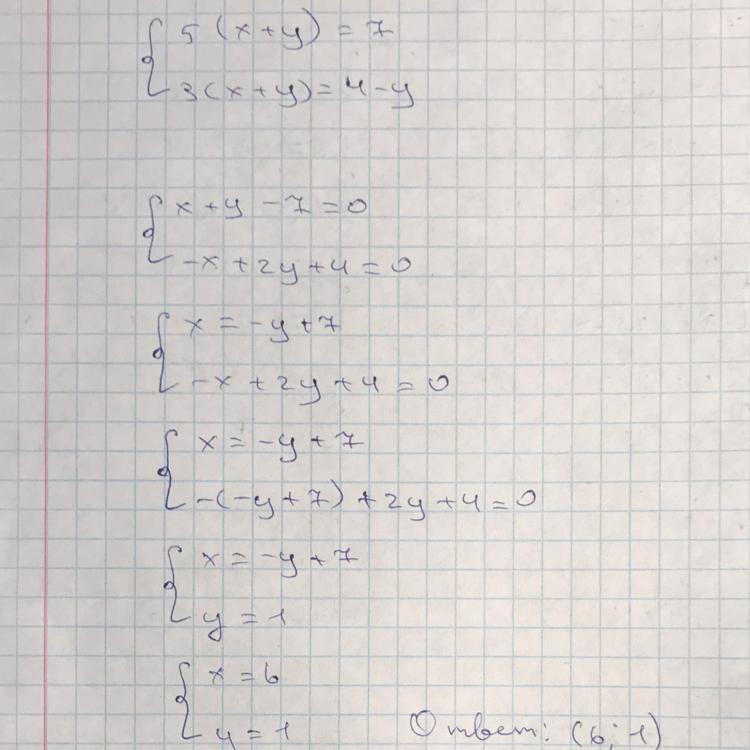 5(x+y) = 7
3(x+y) = 4-y
x+y-7=0
-x+2y+4=0
x=-y+7
-x+2y+4=0
x=-y+7
-(-y+7)+2y+4=0
x=-y+7
y=1
x=6
y=1 Ответ: (6; 1)